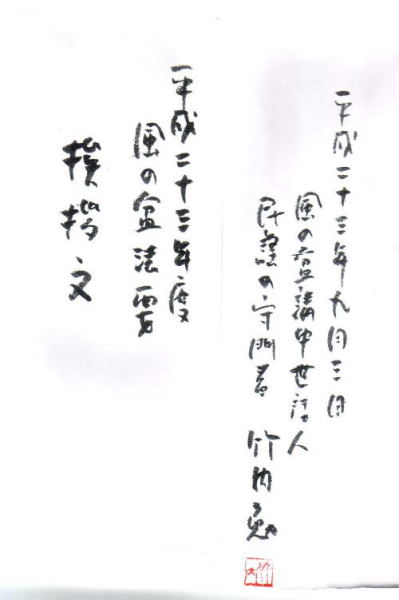 平成二十三年九月三日
風の盆講中世話人
民謡の守 竹内勉
平成二十三年度
風の盆法要
挨拶文